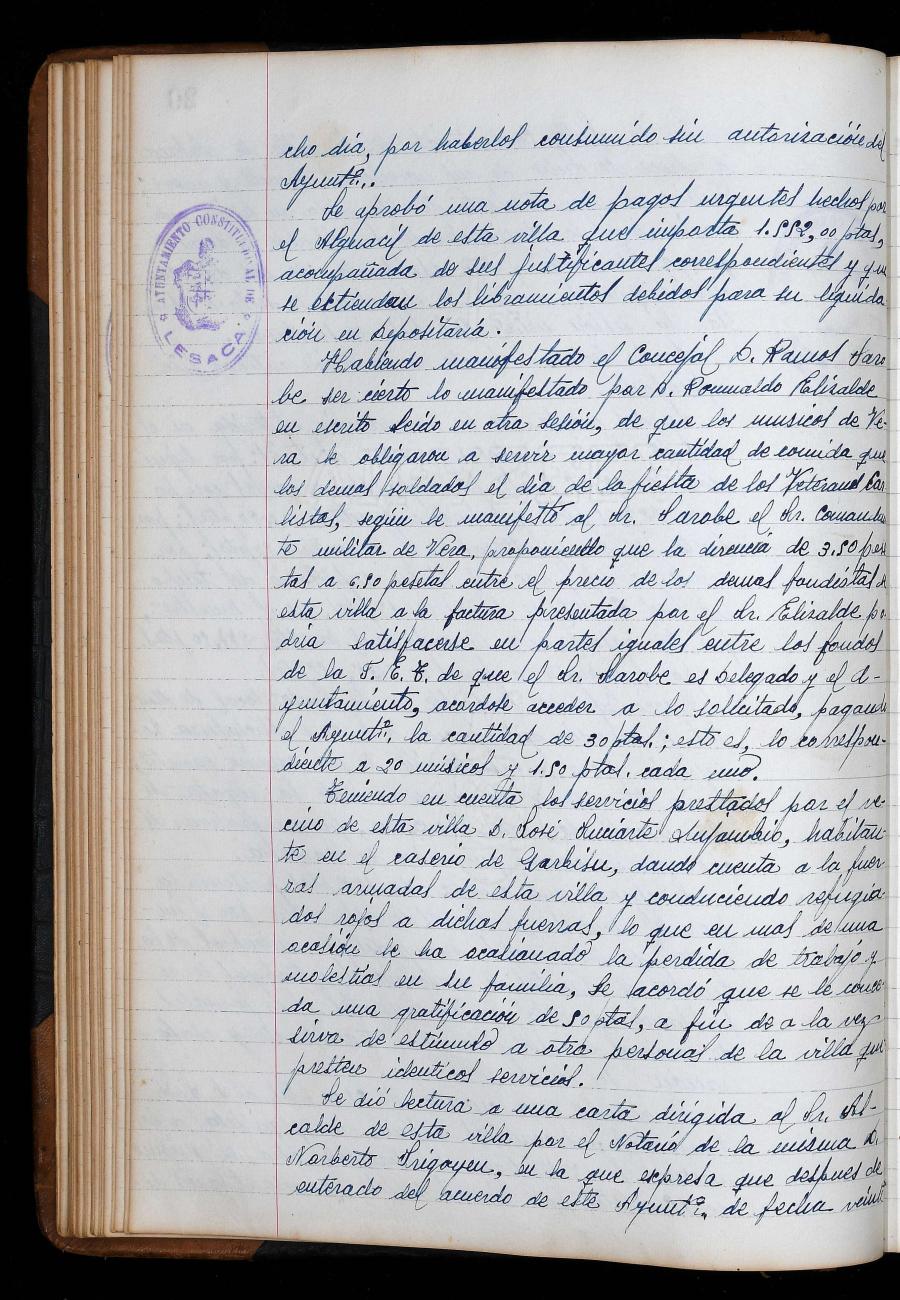 AYUNTAMIENTO CONSTITUCIONAL DE
LESACA
cho dia, por haberlos consumido sin autorización del
Ayuntº..
Se aprobó una nota de pagos urgentes hechos por
el Alguacil de esta villa que importa 1.552,00 ptas,
acompañada de sus justificantes correspondientes y que
se extiendan los libramientos debidos para su liquida
ción en Depositaria.
Habiendo manifestado el Concejal D. Ramos Saro
be ser cierto lo manifestado por D. Romualdo Elizalde
en escrito leido en otra sesión, de que los musicos de Ve-
ra le obligaron a servir mayor cantidad de comida que
los demas soldados el dia de la fiesta de los Veteranos Car
listas, según le manifestó al Sr. Sarobe el Sr. Comandan
te militar de Vera, proponiendo que la direncia de 3.50 pes
tas a 6.50 pesetas entre el precio de los demas fondistas de
esta villa a la factura presentada por el Sr. Elizalde po-
dria satisfacerse en partes iguales entre los fondos
de la F. E. T. de que el Sr. Sarobe es Delegado y el A-
yuntamiento, acordose acceder a lo solicitado, pagando
el Ayuntº. la cantidad de 30 ptas.; esto es, lo correspon-
diente a 20 músicos y 1.50 ptas. cada uno.
Teniendo en cuenta los servicios prestados por el ve-
cino de esta villa D. José habitan-
te en el caserio de Garbisu, dando cuenta a la fuer
zas armadas de esta villa y conduciendo refugia-
dos rojos a dichas fuerzas, lo que en mas de una
ocasión le ha ocasionado la perdida de trabajo y
molestias en su familia, Se acordó que se le conce-
da una gratificación de 50 ptas, a fin de a la vez
sirva de estimulo a otro personal de la villa que
presten identicos servicios.
Se dió lectura a una carta dirigida al Sr. Al-
calde de esta villa por el Notario de la misma D.
Norberto Irigoyen, en la que expresa que despues de
enterado del acuerdo de este Ayuntº. de fecha veinti